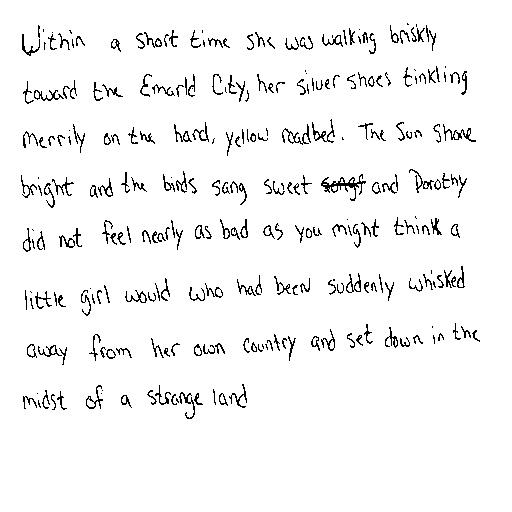 Within a short time she was walking briskly
toward the Emarld City, her silver shoes tinkling
merrily on the hard, yellow roadbed. The sun shone
bright and the birds sang sweet and Dorothy
did not feel nearly as bad as you might think a
little girl would who had been suddenly whisked
away from her own country and set down in the
midst of a strange land